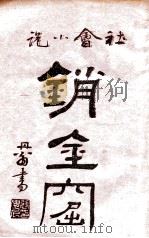 社會小說
銷金窟
丹翁書